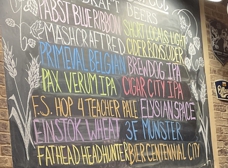 CRAFT BEERS
PABST BLUE RIBBON SHORT LOCALS LIGHT
MASHCRAFT RED CIDERBOYS CIDER
PRIMEVAL BELGIAN BREWDOG IPA
PAX VERUM IPA CIGAR CITY IPA
F.S. HOP 4 TEACHER PALE ELYSIAN SPACE
EINSTOK WHEAT 3F MUNSTER
FATHEAD HEADHUNTER BIER CENTENNIAL CITY